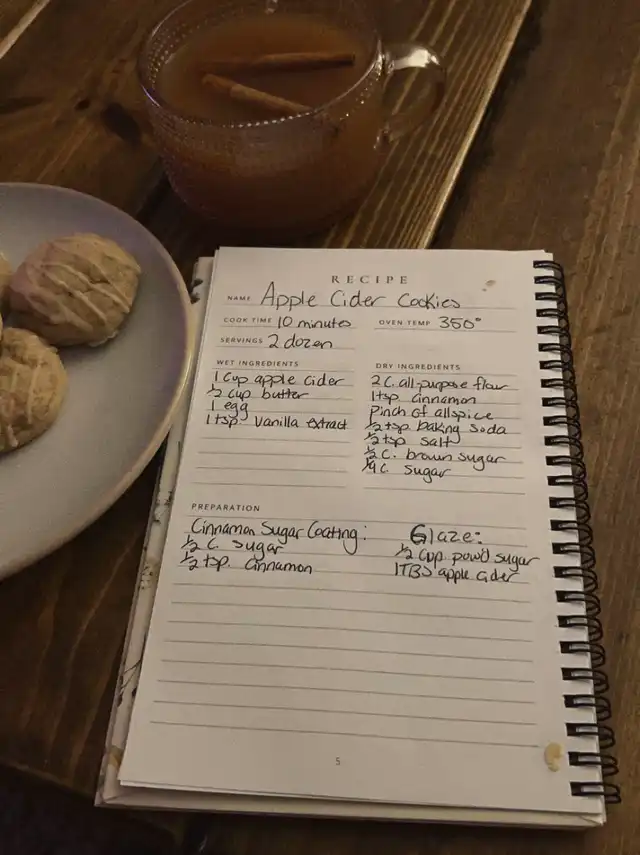 RECIPE
NAME Apple Cider Cookies
COOK TIME 10 minutes OVEN TEMP 350°
SERVINGS 2 dozen
WET INGREDIENTS
1 cup apple cider
1/2 cup butter
1 egg
1 tsp. vanilla extract
DRY INGREDIENTS
2 C. all-purpose flour
1 tsp cinnamon
Pinch of allspice
1/2 tsp baking soda
1/2 tsp salt
1/2 C. brown sugar
1/4 C. sugar
PREPARATION
Cinnamon Sugar Coating:
1/2 C. sugar
1/2 tsp. cinnamon
Glaze:
1/2 cup powd sugar
1 TBS apple cider
5